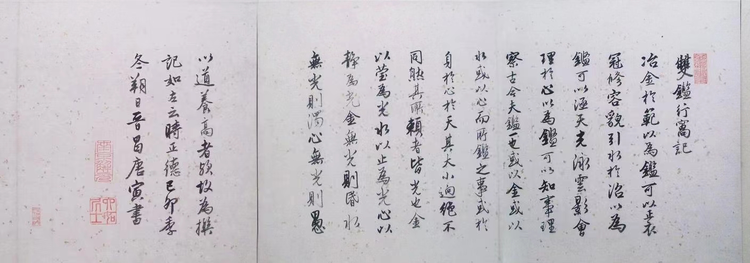 雙鑑行窩記
冶金於範以為鑑可以正衣
冠修容貌引水於沼以為
鑑可以涵天光泳雲影會
理於心以為鑑可以知事理
察古今夫鑑一也或以金或以
水或以心而所鑑之事或於
身於心於天其大小迥絕不
同然其所賴者皆光也金
以瑩為光水以止為光心以
靜為光金無光則昏水
無光則濁心無光則愚
以道養高者歟故為撰
記如左云時正德己卯季
冬朔日晉昌唐寅書
六如居士